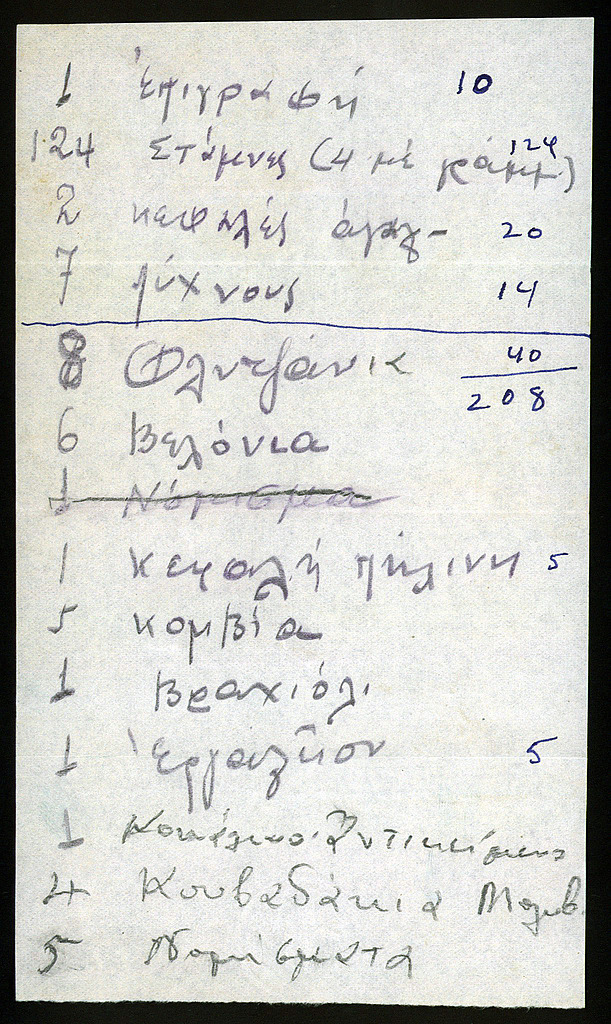 1 ἐπιγραφή 10
124 Στάμνες (4 μέ γράμμ) 124
2 κεφαλές ἀγαλ- 20
7 λύχνους 14
8 Φλυτζάνια 40
208
6 Βελόνια
1 Νόμισμα
1 κεφαλή πήλινη 5
5 κομβία
1 Βραχιόλι
1 Ἐργαλεῖον 5
1 Κοκάλινο Ἀντικείμενο
4 Κουβαδάκια Μολυβ.
5 Νομίσματα